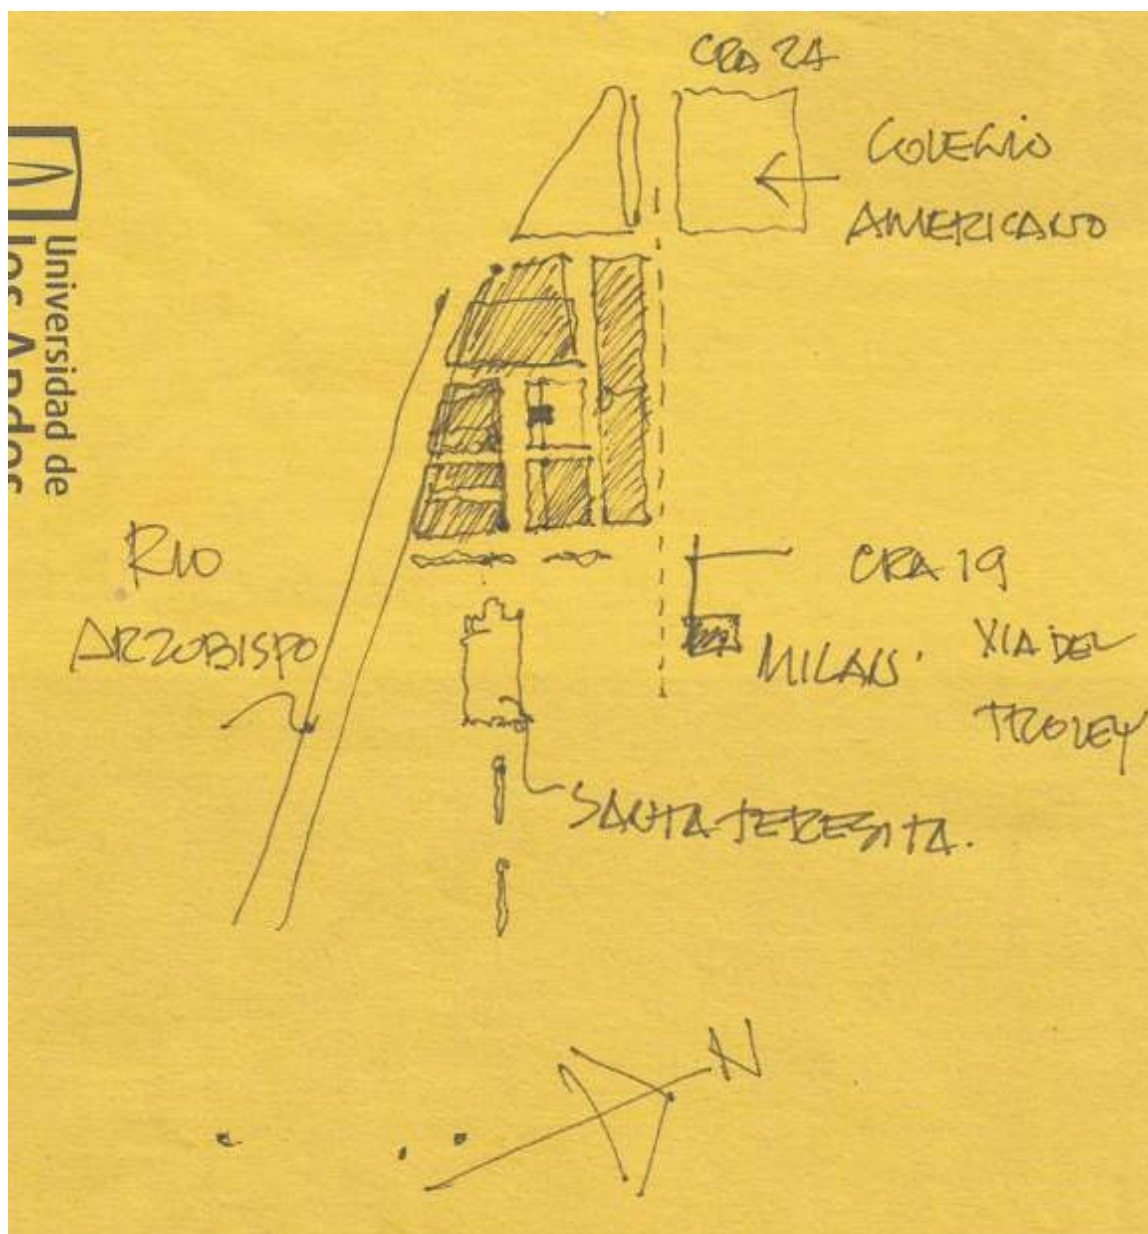 CRA 24
COLEGIO
AMERICANO
Universidad de
los Andes
RIO
ARZOBISPO
CRA 19
MILAN.
VIA DEL
TROLEY
SANTA TERESITA.
N